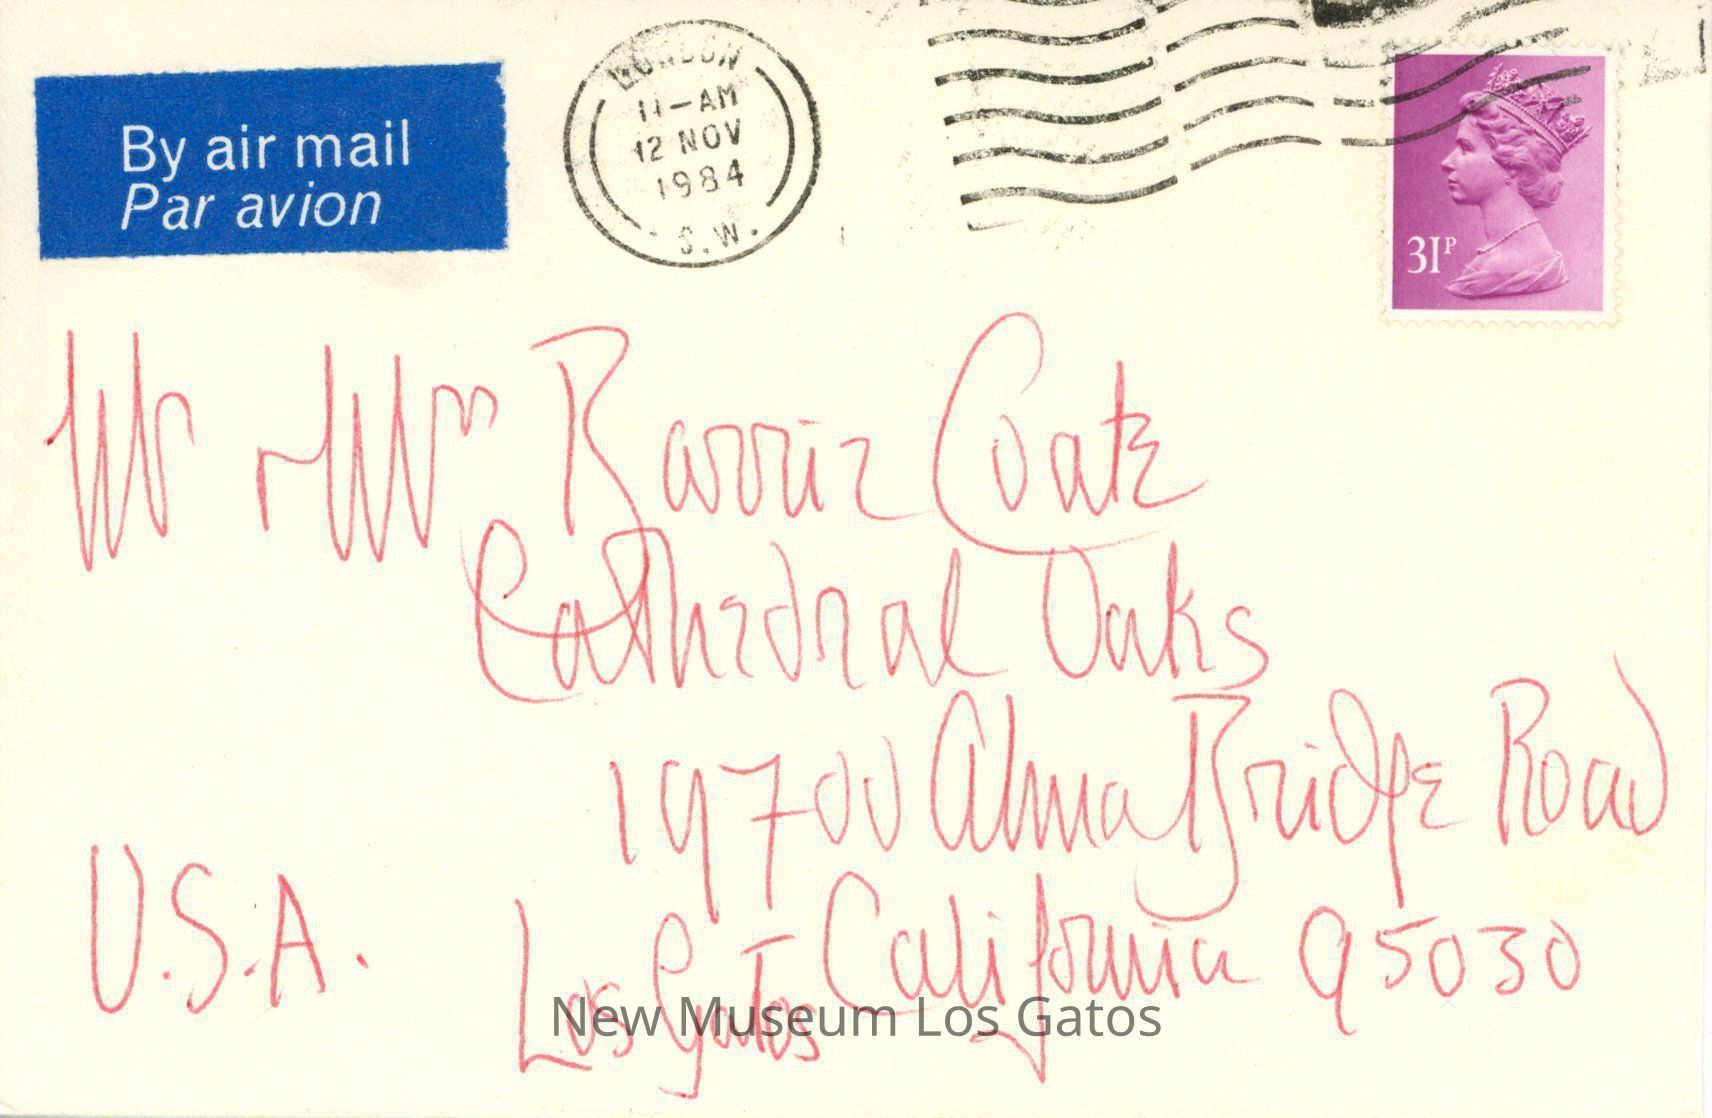 By air mail
Par avion
LONDON
11-AM
12 NOV
1984
S.W.
31P
Mr + Mrs Barrie Coate
Cathedral Oaks
19700 Alma Bridge Road
Los Gatos California 95030
U.S.A.
New Museum Los Gatos